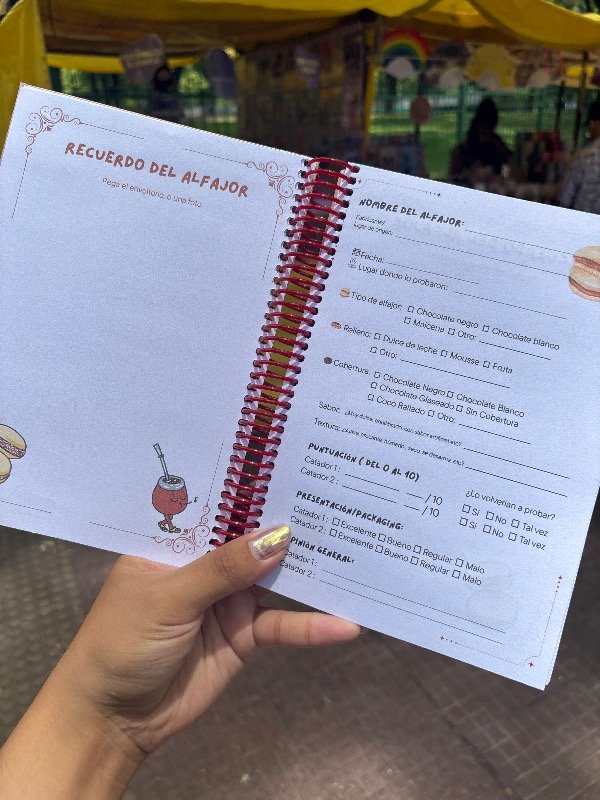 RECUERDO DEL ALFAJOR
Pega el envoltorio o una foto
NOMBRE DEL ALFAJOR:
Fabricante:
Lugar de origen:
Fecha:
Lugar donde lo probaron:
Tipo de alfajor: ☐ Chocolate negro ☐ Chocolate blanco
☐ Maicena ☐ Otro:
Relleno: ☐ Dulce de leche ☐ Mousse ☐ Fruta
☐ Otro:
Cobertura: ☐ Chocolate Negro ☐ Chocolate Blanco
☐ Chocolate Glaseado ☐ Sin Cobertura
☐ Coco Rallado ☐ Otro:
Sabor: ¿Muy dulce, equilibrado, con sabor artificial, etc?
Textura: ¿Suave, crocante, húmedo, seco, se desarma, etc?
PUNTUACIÓN ( DEL 0 AL 10)
Catador 1: /10
Catador 2: /10
¿Lo volverían a probar?
☐ Sí ☐ No ☐ Tal vez
☐ Sí ☐ No ☐ Tal vez
PRESENTACIÓN/PACKAGING:
Catador 1: ☐ Excelente ☐ Bueno ☐ Regular ☐ Malo
Catador 2: ☐ Excelente ☐ Bueno ☐ Regular ☐ Malo
PINIÓN GENERAL:
Catador 1:
Catador 2: